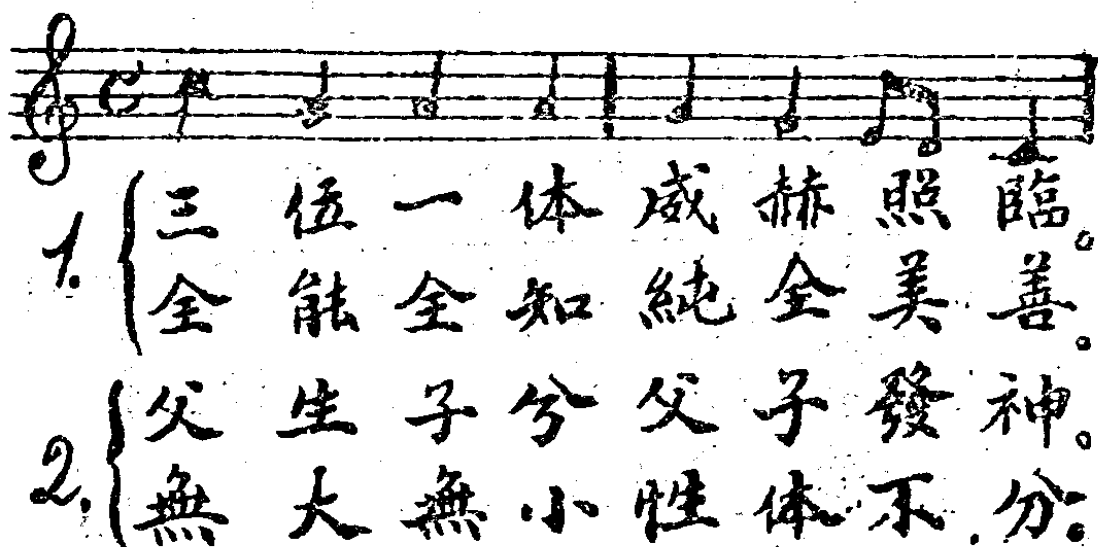 1. 三位一体威赫照臨。
全能全知純全美善。
2. 父生子兮父子發神。
無大無小性体不分。